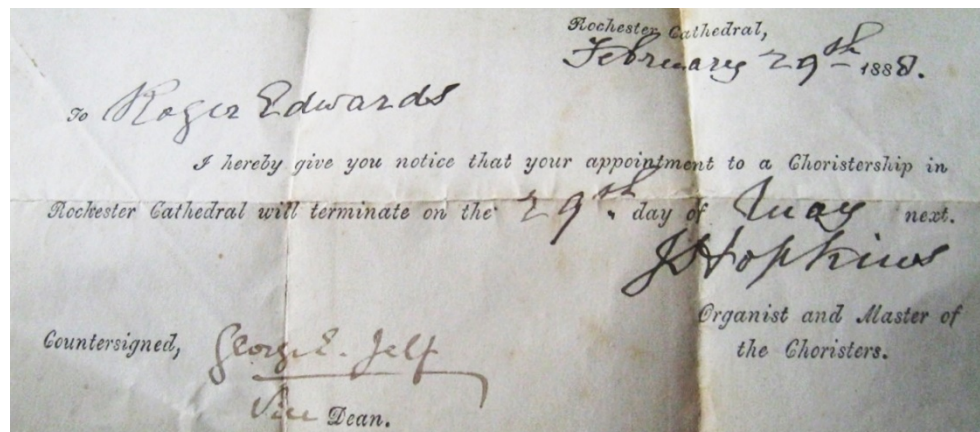 Rochester Cathedral,
February 29th 1888.
To Roger Edwards
I hereby give you notice that your appointment to a Choristership in
Rochester Cathedral will terminate on the 29th day of May next.
J Hopkins
Organist and Master of
the Choristers.
Countersigned, George E. Jelf
Vice Dean.